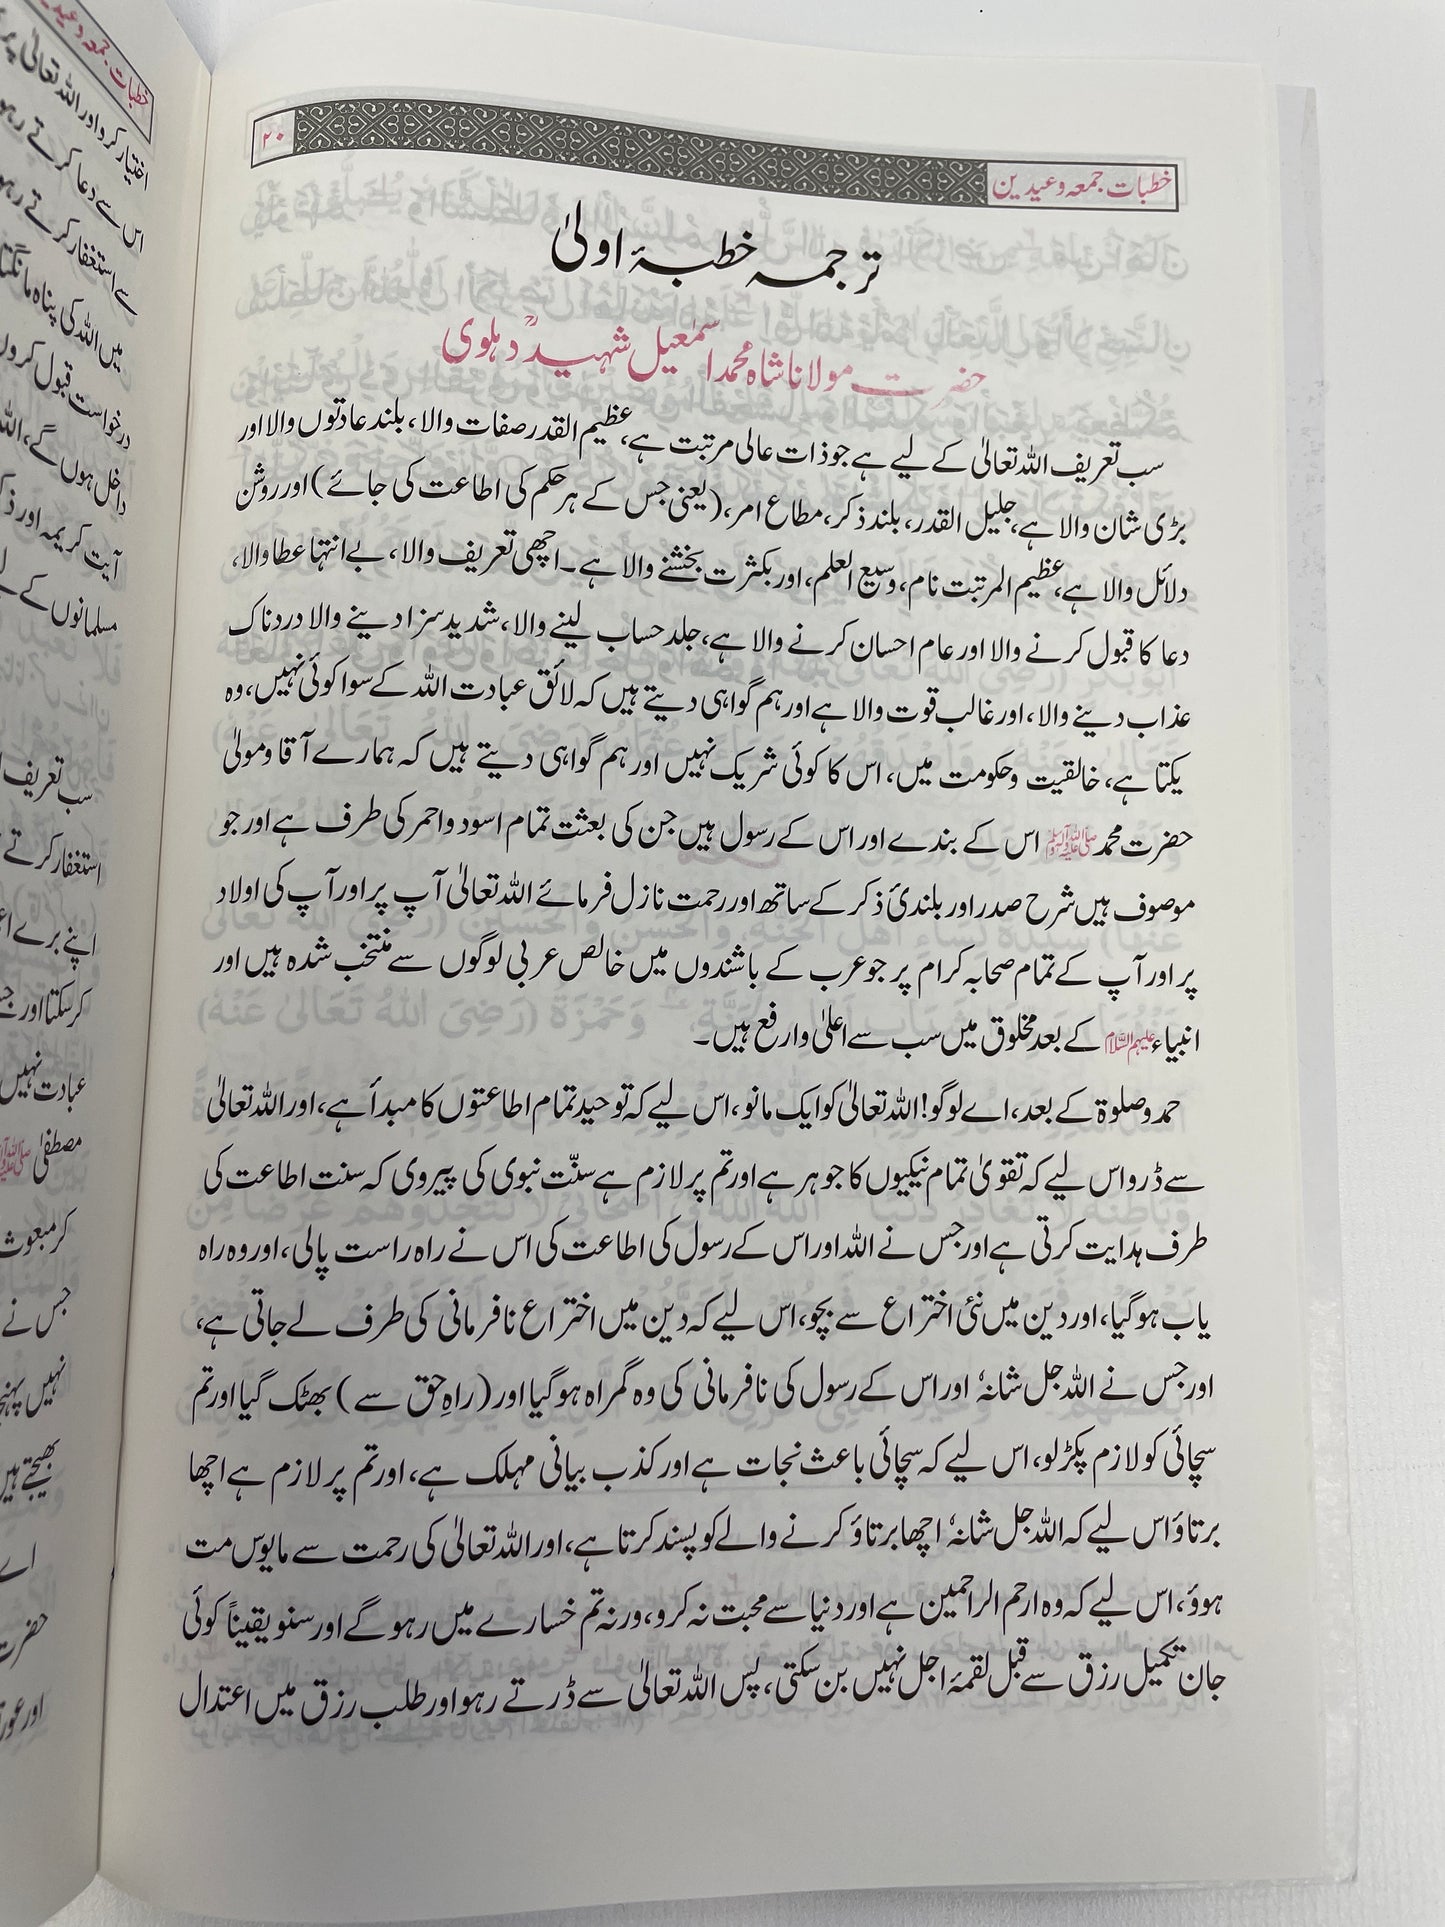 خطبات جمعہ وعیدین
۲۰
ترجمہ خطبۂ اولیٰ
حضرت مولانا شاہ محمد اسمٰعیل شہیدؒ دہلوی
سب تعریف اللہ تعالیٰ کے لیے ہے جو ذات عالی مرتبت ہے، عظیم القدر صفات والا، بلند عادتوں والا اور
بڑی شان والا ہے، جلیل القدر، بلند ذکر، مطاع امر، (یعنی جس کے ہر حکم کی اطاعت کی جائے) اور روشن
دلائل والا ہے، عظیم المرتبت نام، وسیع العلم، اور بکثرت بخشنے والا ہے۔ اچھی تعریف والا، بے انتہا عطا والا،
دعا کا قبول کرنے والا اور عام احسان کرنے والا ہے، جلد حساب لینے والا، شدید سزا دینے والا دردناک
عذاب دینے والا، اور غالب قوت والا ہے اور ہم گواہی دیتے ہیں کہ لائق عبادت اللہ کے سوا کوئی نہیں، وہ
یکتا ہے، خالقیت وحکومت میں، اس کا کوئی شریک نہیں اور ہم گواہی دیتے ہیں کہ ہمارے آقا ومولیٰ
حضرت محمد ﷺ اس کے بندے اور اس کے رسول ہیں جن کی بعثت تمام اسود واحمر کی طرف ہے اور جو
موصوف ہیں شرح صدر اور بلندئ ذکر کے ساتھ اور رحمت نازل فرمائے اللہ تعالیٰ آپ پر اور آپ کی اولاد
پر اور آپ کے تمام صحابہ کرام پر جو عرب کے باشندوں میں خالص عربی لوگوں سے منتخب شدہ ہیں اور
انبیاء علیہم السلام کے بعد مخلوق میں سب سے اعلیٰ وارفع ہیں۔
حمد وصلوۃ کے بعد، اے لوگو! اللہ تعالیٰ کو ایک مانو، اس لیے کہ توحید تمام اطاعتوں کا مبدأ ہے، اور اللہ تعالیٰ
سے ڈرو اس لیے کہ تقویٰ تمام نیکیوں کا جوہر ہے اور تم پر لازم ہے سنّت نبوی کی پیروی کہ سنت اطاعت کی
طرف ہدایت کرتی ہے اور جس نے اللہ اور اس کے رسول کی اطاعت کی اس نے راہ راست پالی، اور وہ راہ
یاب ہوگیا، اور دین میں نئی اختراع سے بچو، اس لیے کہ دین میں اختراع نافرمانی کی طرف لے جاتی ہے،
اور جس نے اللہ جل شانہٗ اور اس کے رسول کی نافرمانی کی وہ گمراہ ہوگیا اور (راہِ حق سے) بھٹک گیا اور تم
سچائی کو لازم پکڑلو، اس لیے کہ سچائی باعث نجات ہے اور کذب بیانی مہلک ہے، اور تم پر لازم ہے اچھا
برتاؤ اس لیے کہ اللہ جل شانہٗ اچھا برتاؤ کرنے والے کو پسند کرتا ہے، اور اللہ تعالیٰ کی رحمت سے مایوس مت
ہوؤ، اس لیے کہ وہ ارحم الراحمین ہے اور دنیا سے محبت نہ کرو، ورنہ تم خسارے میں رہو گے اور سنو یقیناً کوئی
جان تکمیل رزق سے قبل لقمۂ اجل نہیں بن سکتی، پس اللہ تعالیٰ سے ڈرتے رہو اور طلب رزق میں اعتدال
خطبات جمعہ وعید
اختیار کرو اور اللہ تعالیٰ پر
اس سے دعا کرتے رہو
سے استغفار کرتے رہو
میں اللہ کی پناہ مانگتا
درخواست قبول کروں
داخل ہوں گے، اللہ
آیت کریمہ اور
مسلمانوں کے
سب تعریف
استغفار کرتے
اپنے برے
کرسکتا اور
عبادت نہیں
مصطفیٰ ﷺ
کر مبعوث
جس نے
نہیں
بھیجتے ہیں
اے
حضرت
اور